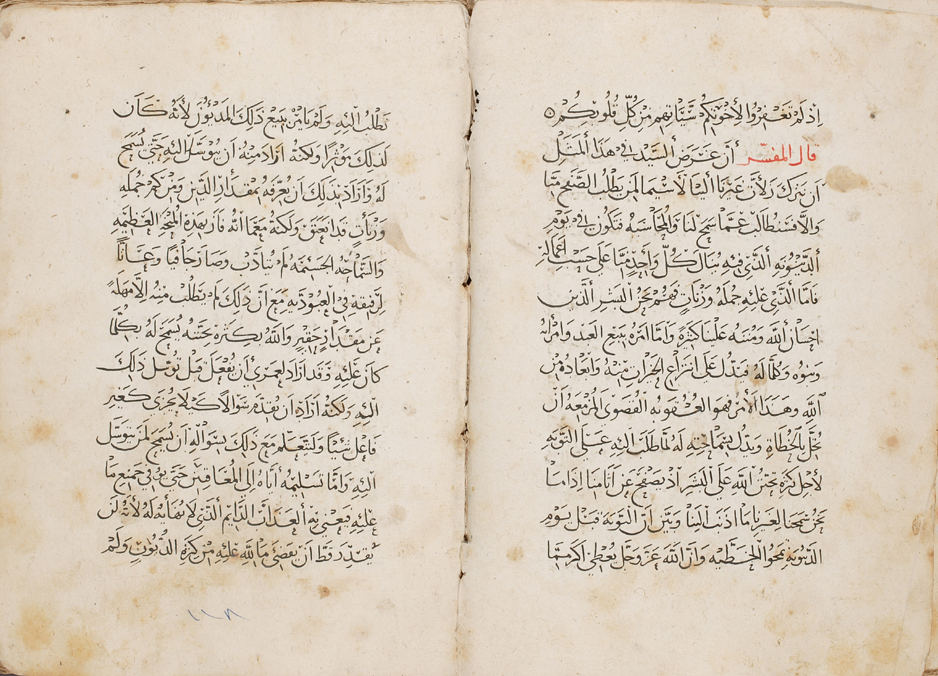 اذ لم تغفروا لاخوتكم سياتهم من كل قلوبكم
قال المفسر أن غرض السيد في هذا المثل
ان نترك زلات غيرنا الينا لا سيما لمن يطلب الصفح منا
والا فسنطالب عما سمح لنا والمحاسبه فتكون في يوم
الدينونه الذي فيه يسال كل واحد منا على حسب اعماله
فاما الذي عليه جمله وزنات فهو نحن البشر الذين
احسان الله ومننه علينا كثيرة واما امره ببيع العبد وامراته
وبنوه وكلما له فتدل على انتزاع الخيرات منه وابعاده من
الله وهذا الامر فهو العقوبه القصوى المزمعه ان
تحل بالخطاة ويدل بسماحته له لما طلب اليه على التوبه
لاجل كثرة تحنن الله على البشر اذ يصفح عن اثامنا اذا ما
نحن سمحنا لغيرنا ما اذنب الينا وبين ان التوبة قبل يوم
الدينونه تمحو الخطيه وان الله عز وجل يعطي اكثر مما
تطلب اليه ولم يامر ببيع ذلك المديون لانه كان
لذلك موثرا ولكنه اراد منه ان يتوسل اليه حتى يسمح
له واراد بذلك ان يعرفه بمقدار الدين ومن كم جمله
وزنات قد انعتق ولكنه معما انه فاز بهذه المنحه العظيمه
والسماحه الجسيمه لم يتادب وصار جافيا وعاتيا
لرفيقه في العبوديه مع ان ذلك لم يطلب منه الا مهله
عن مقدار حقير والله بكثره تحننه يسمح له بكلما
كان عليه وقد اراد لعمري ان يفعل قبل توسل ذلك
اليه ولكنه اراد ان يقدم سوالا كيلا يجزى كغير
فاعل شيا وليتعلم مع ذلك بسواله ان يسمح لمن يتوسل
اليه واما تسليمه اياه الى المعاقبين حتى يوفي جميع ما
عليه فيعني به العذاب الدايم الذي لا نهايه له لانه لن
يقدر قط ان يقضي ما لله عليه من كثرة الديون ولم
١١٨